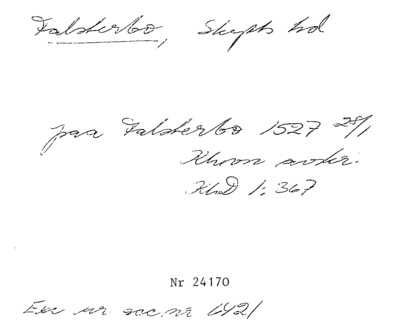 Falsterbo, Skytts hd
paa Falsterbo 1527 28/1
avskr.
1:367
Nr 24170
Exc ur acc.nr 6421